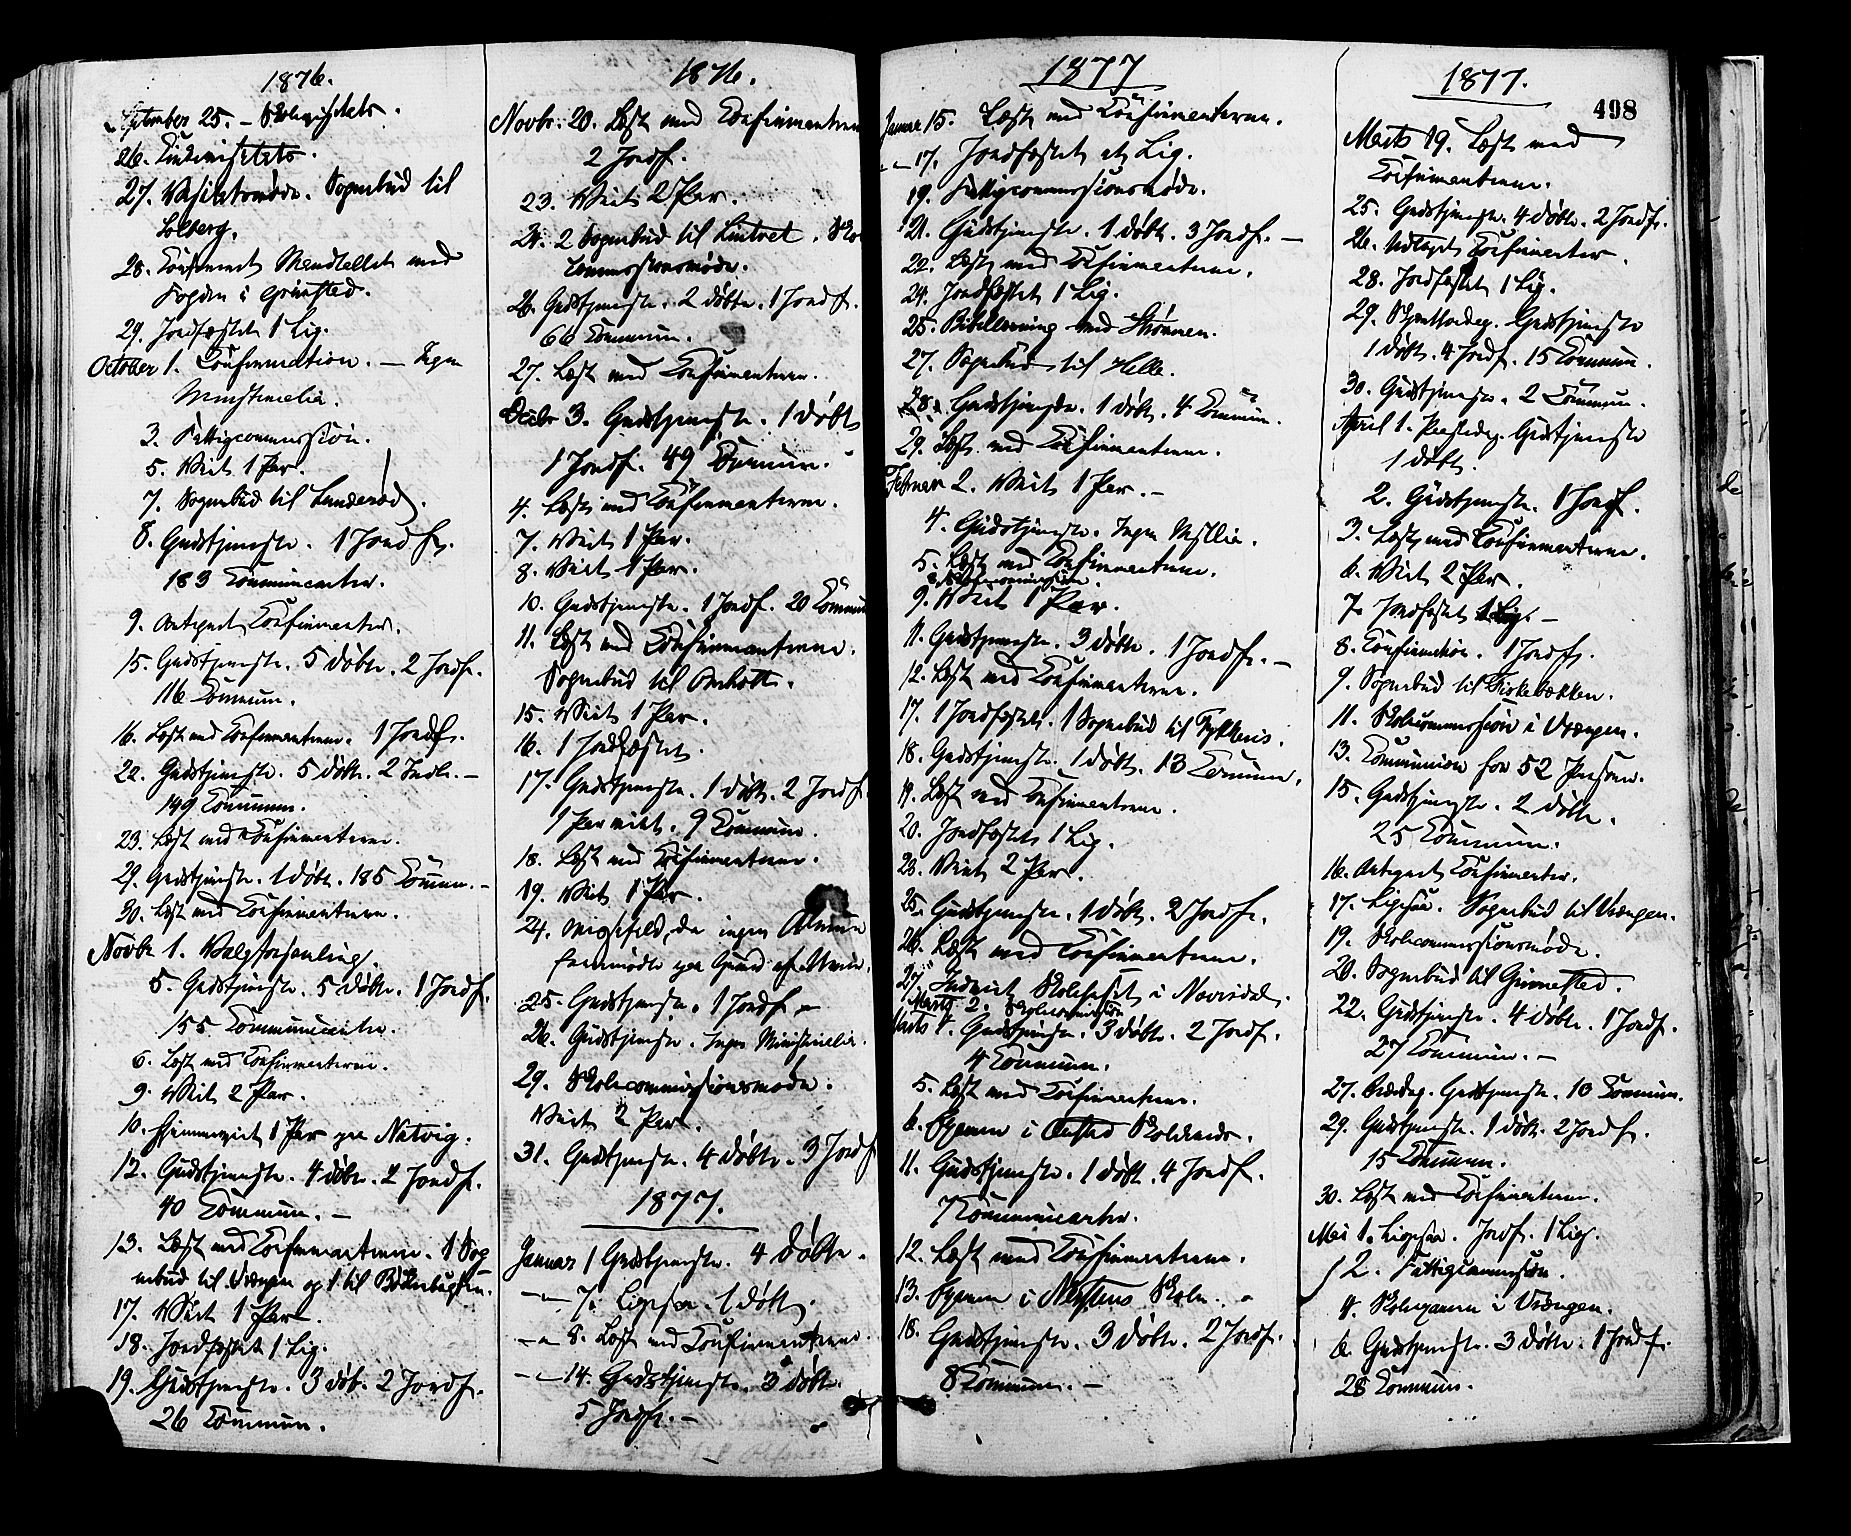 1876.
September 25. – Skolevisitats.
26. Kirkevisitats.
27. Visitatsmøde. Sognebud til
Solberg.
28. Confereret med
Fogden i Grimstad.
29. Jordfæstet 1 Lig.
October 1. Confirmation. – Ingen
Ministerialia.
3. Fattigcommission.
5. Viet 1 Par.
7. Sognebud til Landerød.
8. Gudstjeneste. 1 Jordf.
183 Communicanter.
9. Antegnet Confirmanter.
15. Gudstjeneste. 5 døbte. 2 Jordf.
116 Commun.
16. Læst med Confirmanterne. 1 Jordf.
22. Gudstjeneste. 5 døbte. 2 –
149 Commun.
23. Læst med Confirmanterne.
29. Gudstjeneste. 1 døbt. 185 Commun. –
30. Læst med Confirmanterne.
Novbr 1. Valgforsamling.
5. Gudstjeneste. 5 døbte. 1 Jordf.
155 Communicanter.
6. Læst med Confirmanterne.
9. Viet 2 Par.
10. Hjemmeviet 1 Par paa Natvig.
12. Gudstjeneste. 4 døbte. 2 Jordf.
40 Commun. –
13. Læst med Confirmanterne. 1 Sog-
nebud til Vrængen og 1 til
17. Viet 1 Par.
18. Jordfæstet 1 Lig.
19. Gudstjeneste. 3 døb. 2 Jordf.
26 Commun.
1876.
Novbr: 20. Læst med Confirmanterne
2 Jordf.
23. Viet 2 Par.
24. 2 Sognebud til . Skole
commissionsmøde.
26. Gudstjeneste. 2 døbte. 1 Jordf.
66 Commun.
27. Læst med Confirmanterne.
Decbr 3. Gudstjeneste. 1 døbt
1 Jordf. 49 Commun. –
4. Læst med Confirmanterne.
7. Viet 1 Par.
8. Viet 1 Par.
10. Gudstjeneste. 1 Jordf. 20 Commun
11. Læst med Confirmanterne.
Sognebud til
15. Viet 1 Par.
16. 1 Jordfæstet.
17. Gudstjeneste. 1 døbt. 2 Jordf
1 Par viet. 9 Commun.
18. Læst med Confirmanterne.
19. Viet 1 Par.
24. Messefald, da ingen Almue
fremmødte paa Grund af
25. Gudstjeneste. 1 Jordf –
26. Gudstjeneste. Ingen Ministerialia.
29. Skolecommissionsmøde.
Viet 2 Par.
31. Gudstjeneste. 4 døbte. 3 Jordf
1877.
Januar 1 Gudstjeneste. 4 døbte.
– 7. Ligesaa. 1 døbt.
– 8. Læst med Confirmanterne.
– 14. Gudstjeneste. 3 døbte.
5 Jordf. –
1877
Januar 15. Læst med Confirmanterne.
– 17. Jordfæstet et Lig.
19. Fattigcommissionsmøde.
21. Gudstjeneste. 1 døbt. 3 Jordf. –
22. Læst med Confirmanterne.
24. Jordfæstet 1 Lig.
25. Bibellæsning ved Strømmen.
27. Sognebud til Helle.
28. Gudstjeneste. 1 døbt. 4 Commun.
29. Læst med Confirmanterne.
Februar 2. Viet 1 Par. –
4. Gudstjeneste. Ingen
5. Læst med Confirmanterne.
9. Viet 1 Par.
11. Gudstjeneste. 3 døbte. 1 Jordf. –
12. Læst med Confirmanterne.
17. 1 Jordfæstet. 1 Sognebud til
18. Gudstjeneste. 1 døbt. 13 Commun.
19. Læst med Confirmanterne.
20. Jordfæstet 1 Lig.
23. Viet 2 Par.
25. Gudstjeneste. 1 døbt. 2 Jordf.
26. Læst med Confirmanterne.
27. Indviet Skolehuset i
Marts 2. Skolecommission
Marts 4. Gudstjeneste. 3 døbte. 2 Jordf.
4 Commun.
5. Læst med Confirmanterne.
6. Examen i Skolekreds.
11. Gudstjeneste. 1 døbt. 4 Jordf.
7 Communicanter.
12. Læst med Confirmanterne.
13. Examen i Skole.
18. Gudstjeneste. 3 døbte. 2 Jordf.
8 Commun. –
1877.
498
Marts 19. Læst med
Confirmanterne.
25. Gudstjeneste. 4 døbte. 2 Jordf.
26. Udtaget Confirmanter.
28. Jordfæstet 1 Lig.
29. Skjærthorsdag. Gudstjeneste
1 døbt. 4 Jordf. 15 Commun.
30. Gudstjeneste. 2 Commun.
April 1. Paaskedag. Gudstjeneste
1 døbt.
2. Gudstjeneste. 1 Jordf.
3. Læst med Confirmanterne.
6. Viet 2 Par.
7. Jordfæstet 1 Lig. –
8. Confirmation. 1 Jordf.
9. Sognebud til Kirkebakken.
11. Skolecommission i Vrængen.
13. Communion for 52 Personer.
15. Gudstjeneste. 2 døbte.
25 Commun.
16. Antegnet Confirmanter.
17. Ligesaa. Sognebud til Vrængen.
19. Skolecommissionsmøde.
20. Sognebud til Grimestad.
22. Gudstjeneste. 4 døbte. 1 Jordf.
27 Commun. –
27. Bededag. Gudstjeneste. 10 Commun.
29. Gudstjeneste. 1 døbt. 2 Jordf.
15 Commun.
30. Læst med Confirmanterne.
Mai 1. Ligesaa. Jordf. 1 Lig.
2. Fattigcommission.
4. Skoleexamen i Vrængen.
6. Gudstjeneste. 3 døbte. 1 Jordf.
28 Commun.